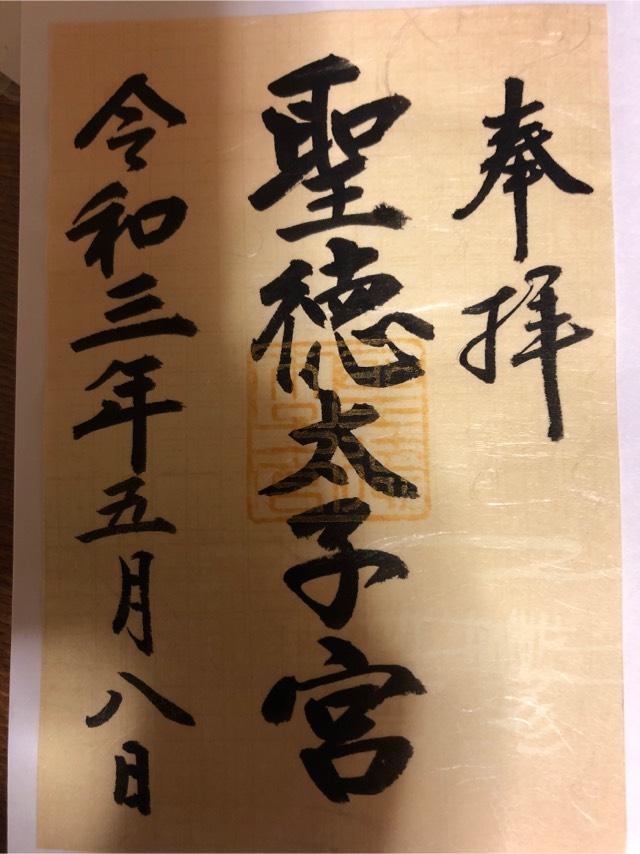 奉拝
聖徳太子宮
令和三年五月八日